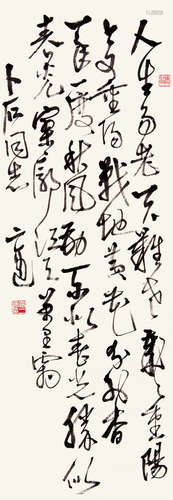 人生易老天難老歲々重陽
今又重陽戰地黃花分外香
一年一度秋風勁不似春光勝似
春光寥廓江天萬里霜
卜石同志
二適